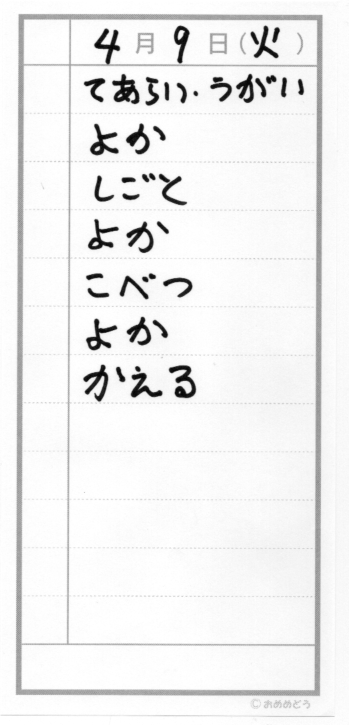 4月9日(火)
てあらい・うがい
よか
しごと
よか
こべつ
よか
かえる
©おめめどう